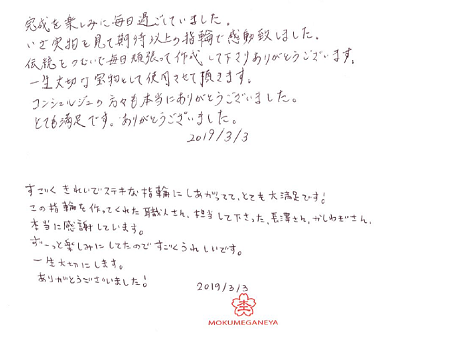 完成を楽しみに毎日過ごしていました。
いざ実物を見て期待以上の指輪で感動致しました。
伝統をつむいで毎日頑張って作成して下さりありがとうございます。
一生大切な宝物として使用させて頂きます。
コンシェルジュの方々も本当にありがとうございました。
とても満足です。ありがとうございました。
2019/3/3
すごくきれいでステキな指輪にしあがってて、とても大満足です!
この指輪を作ってくれた職人さん、担当して下さった、長澤さん、かしわぎさん、
本当に感謝しています。
ずーっと楽しみにしてたのですごくうれしいです。
一生大切にします。
ありがとうございました!
2019/3/3
MOKUMEGANEYA